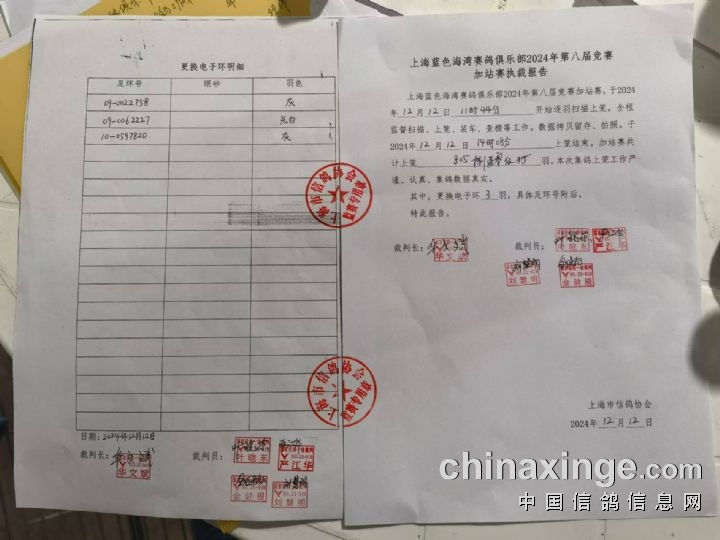 更换电子环明细
足环号 眼砂 羽色
09-0022758 灰
09-0062227
10-0597820 灰
日期：2024年12月12日
裁判长：
华文斌
裁判员：
叶晓东
严江华
金健根
刘慧明
上海市信鸽协会
上海蓝色海湾赛鸽俱乐部2024年第八届竞赛
加站赛执裁报告
上海蓝色海湾赛鸽俱乐部2024年第八届竞赛加站赛，于2024年12月12日11时44分开始逐羽扫描上笼。全程
监督扫描、上笼、装车、查棚等工作。数据拷贝留存、拍照。于
2024年12月12日14时08分上笼结束。加站赛共
计上笼 805 羽。本次集鸽上笼工作严
谨、认真，集鸽数据真实。
其中，更换电子环 3 羽，具体足环号附后。
特此报告。
裁判长：
华文斌
裁判员：
叶晓东
严江华
刘慧明
金健根
上海市信鸽协会
2024年12月12日
chinaxinge.com
中国信鸽信息网